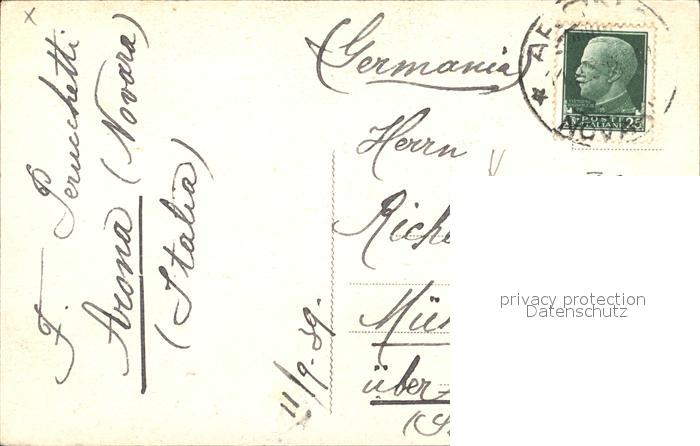 F. Peruchetti
Arona (Novara)
(Italia)
11/9-39-
(Germania)
Herrn
über
POSTE 25
ITALIANE
privacy protection
Datenschutz